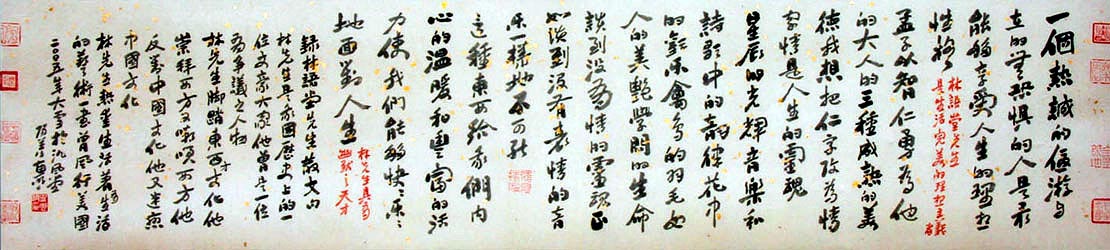 一個熱誠的優游自
在的無恐懼的人是最
能夠享受人生的理想
性格
林語堂先生
是生活完美的理想主義者
孟子以智仁勇為他
的大人的三種成熟的美
德我想把仁字改為情
字情是人生的靈魂
星辰的光輝音樂和
詩歌中的韻律花中
的歡樂禽鳥的羽毛女
人的美艷學問的生命
談到沒有情的靈魂正
如談到沒有表情的音
樂一樣地不可能
這種東西給我們內
心的溫暖和豐富的活
力使我們能夠快々樂々
地面對人生
林先生真為
幽默之天才
錄林語堂先生散文句
林先生是我國歷史上的一
位文豪大家他曾是一位
為爭議之人物
林先生腳踏東西文化他
崇拜西方又嘲咲西方他
反對中國文化他又迷戀
中國文化
林先生熱重生活著有生活
的藝術一書曾風行美國
二〇〇五年大雪於沁風堂